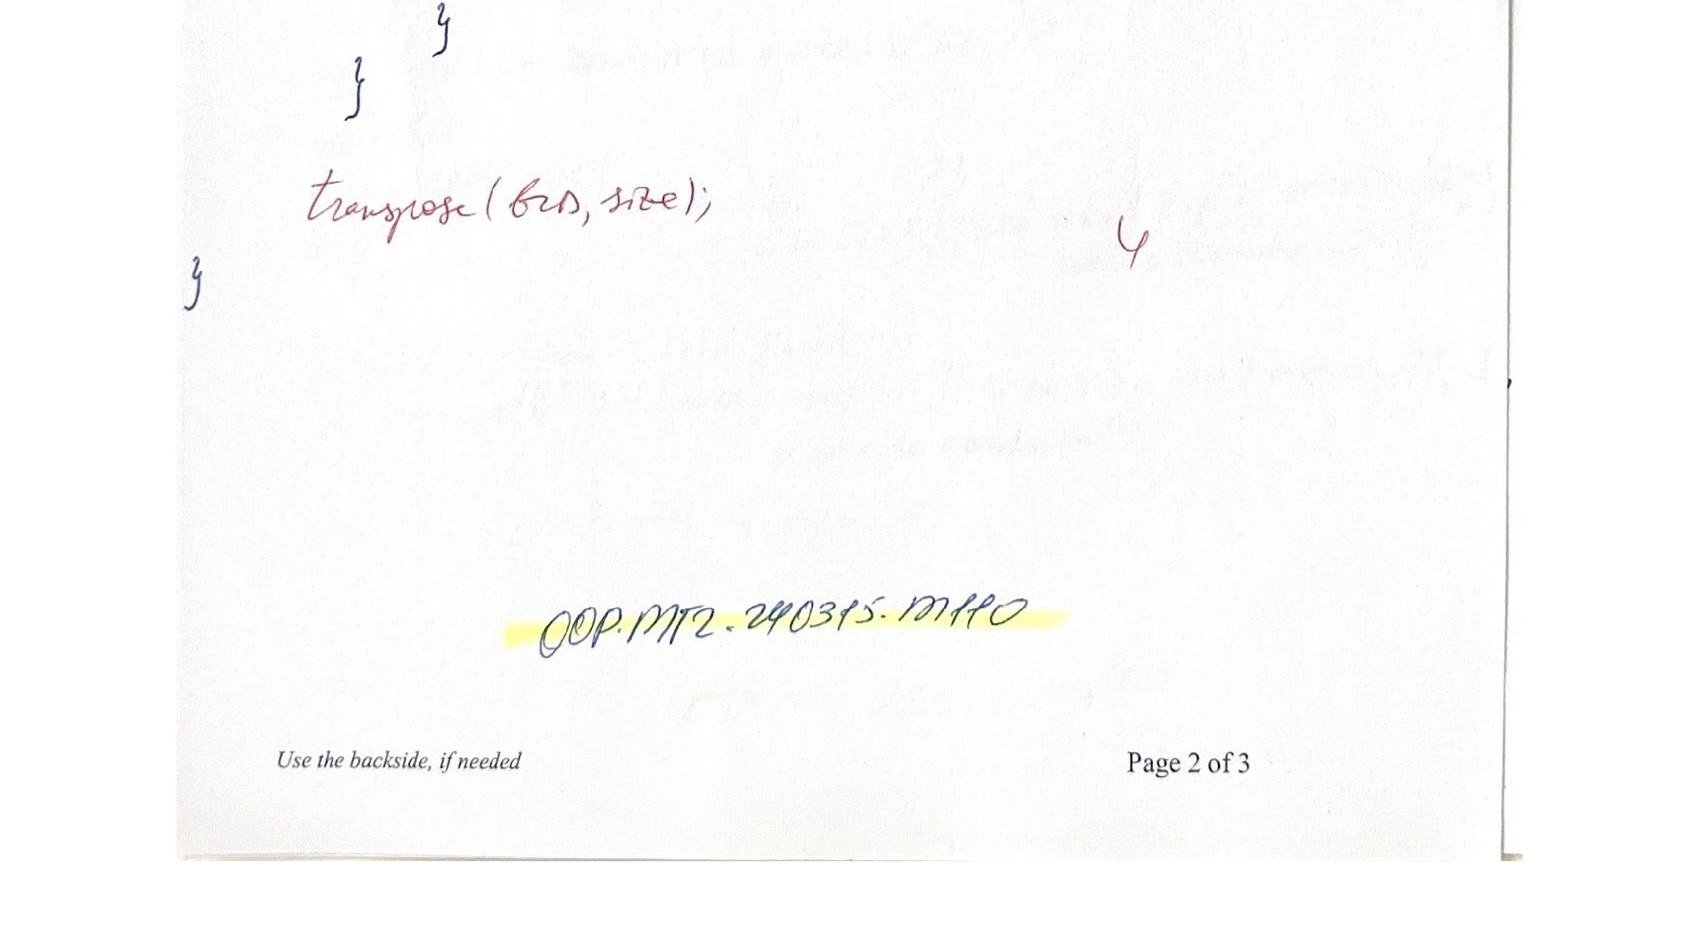 }
}
transpose(br2D, size);
4
}
OOP.MT2.240315.M110
Use the backside, if needed
Page 2 of 3